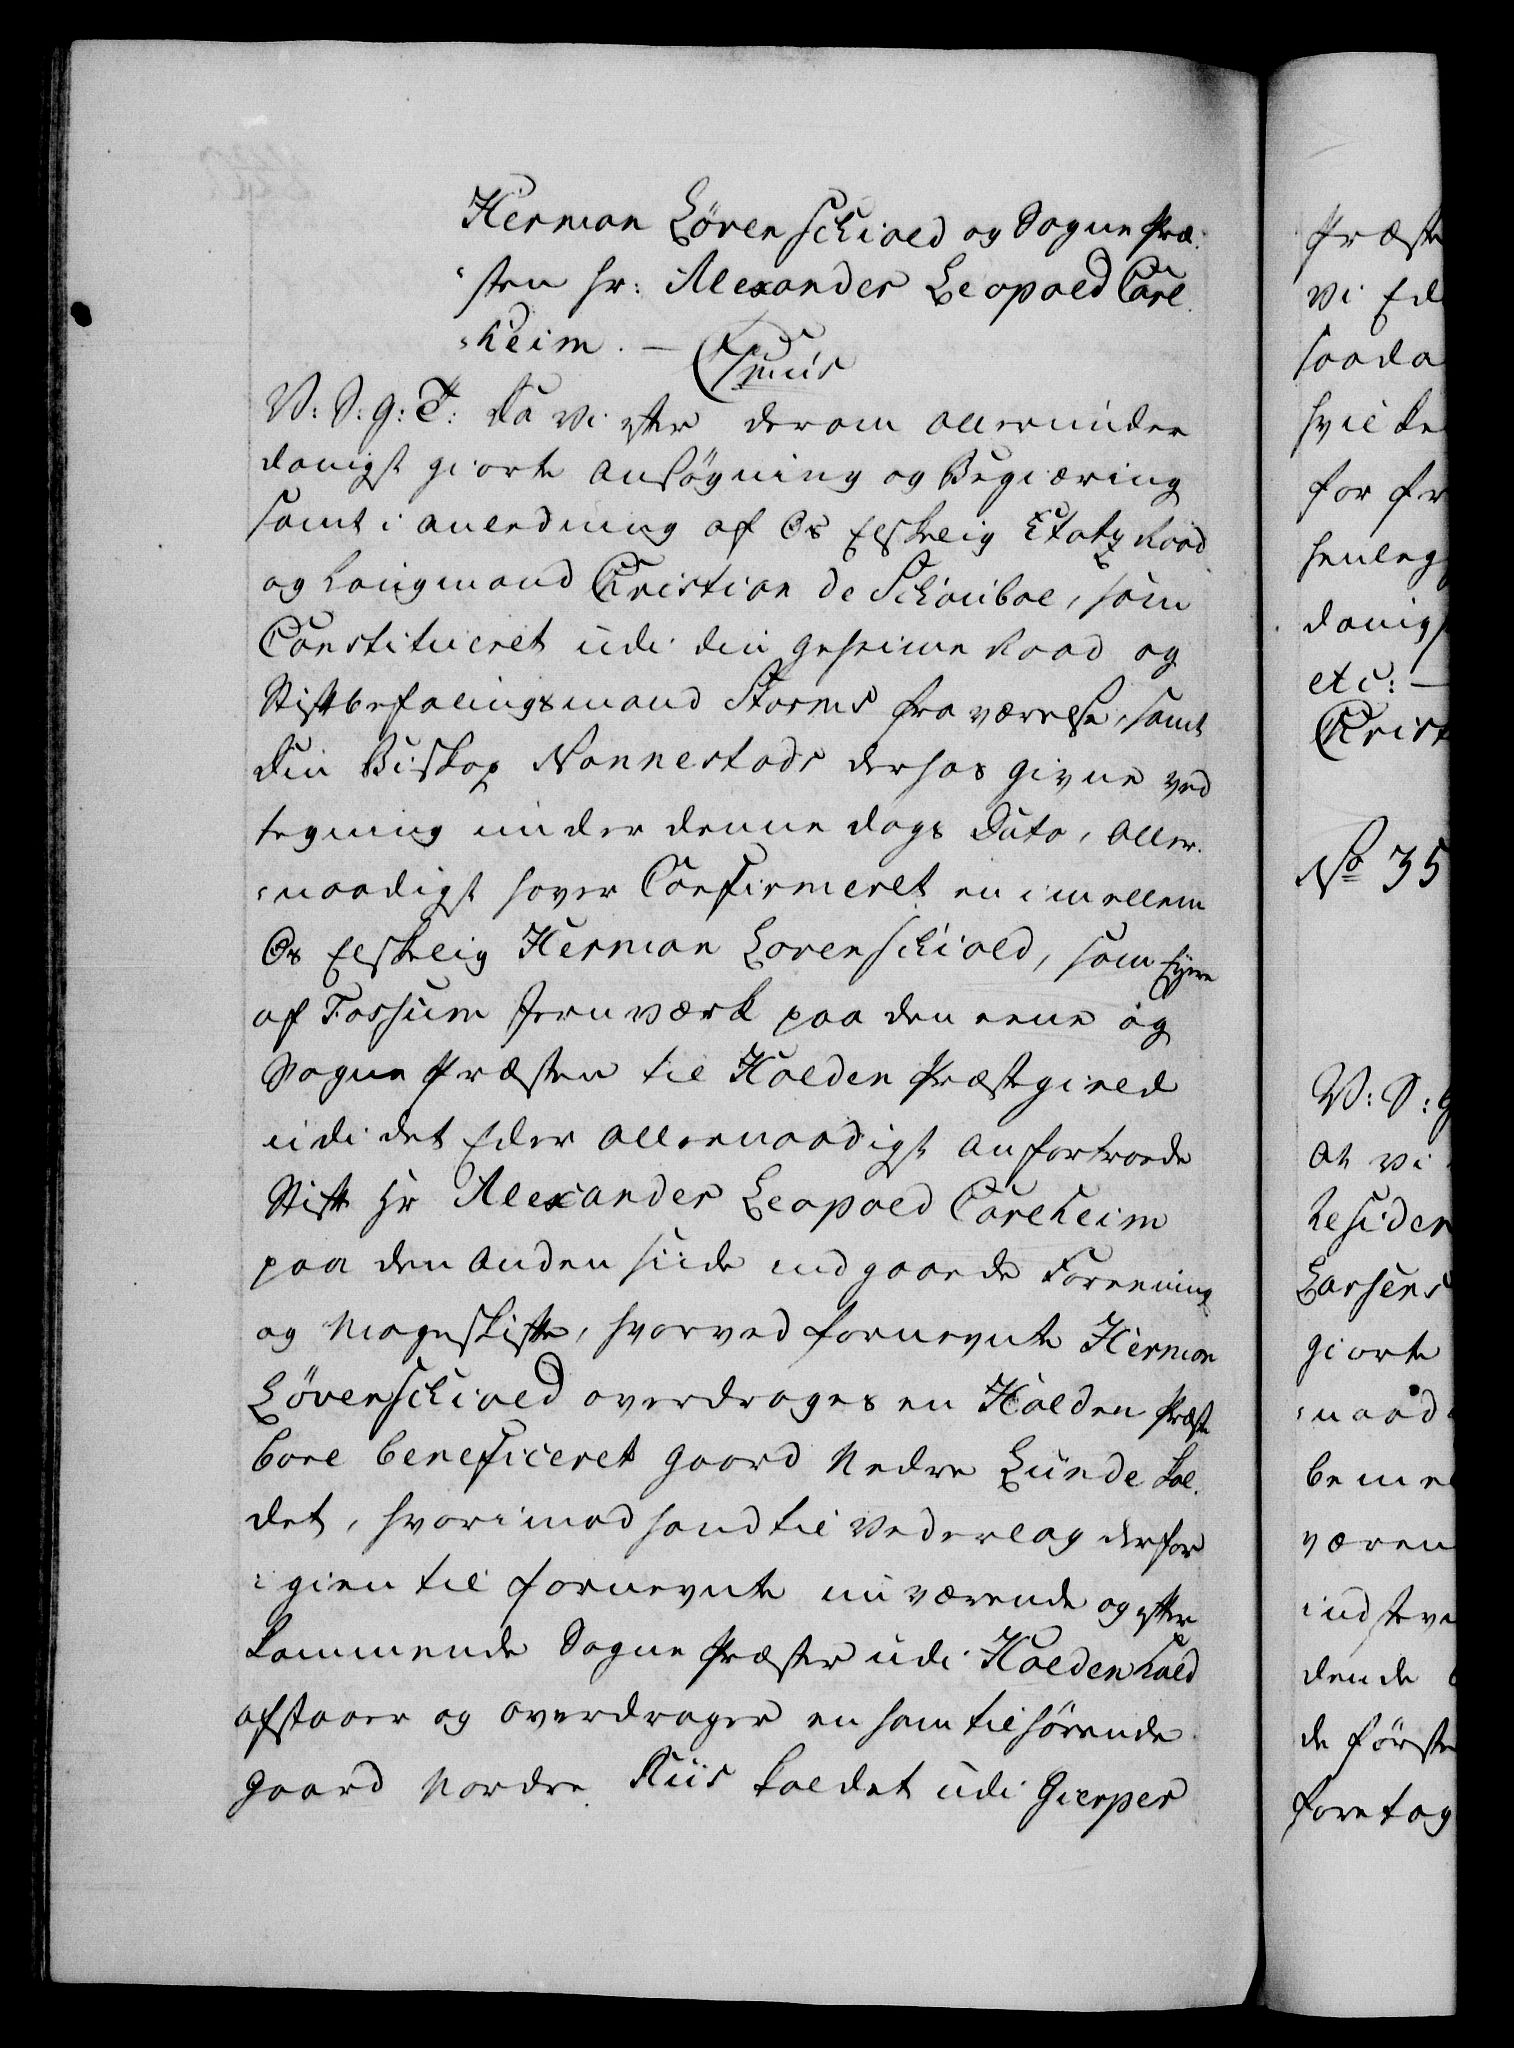 Herman Løvenschiold og Sogne Præ-
"sten Hr: Alexander Leopold Carl
"heim. —
V: S: g: T: Da Vi efter derom allerunder
danigst giorte Ansøgning og Begiæring
samt i anledning af Os Elskelig Etatz Raad
og Laugmand Christian de Schouboe, som
Constitueret udi din Geheime Raad og
Stiftbefalingsmand Storms fraværelse, samt
din Biskop Nannestads derhos givne ved
tegning under denne dags Dato, aller-
"naadigst haver Confirmeret en imellem
Os Elskelig Herman Lovenschiold, som Eyere
af Fossum Jernværk paa den eene og
Sogne Præsten til Holden Præstegield
udi det Eder allernaadigst anfortroede
Stift Hr Alexander Leopold Carlheim
paa den Anden siide indgaaede Forening
og Mageskifte, hvorved fornevnte Herman
Løvenschiold overdrages en Holden Præste
bore beneficeret gaard Nedre Lunde kal-
det, hvorimod hand til Vederlag derfor
igien til fornevnte nu værende og efter
kommende Sogne Præster udi Holden kald
afstaaer og overdrager en ham tilhørende
gaard Nordre Riis kaldet udi Gierper
Præste
Vi Ed
saada
hvilke
for fr
henleg
danigs
etc: —
Christ
No 35
V: S: g
At vi
Residen
Larsens
giorte
"naad
beme
væren
indste
dende
de første
foretag